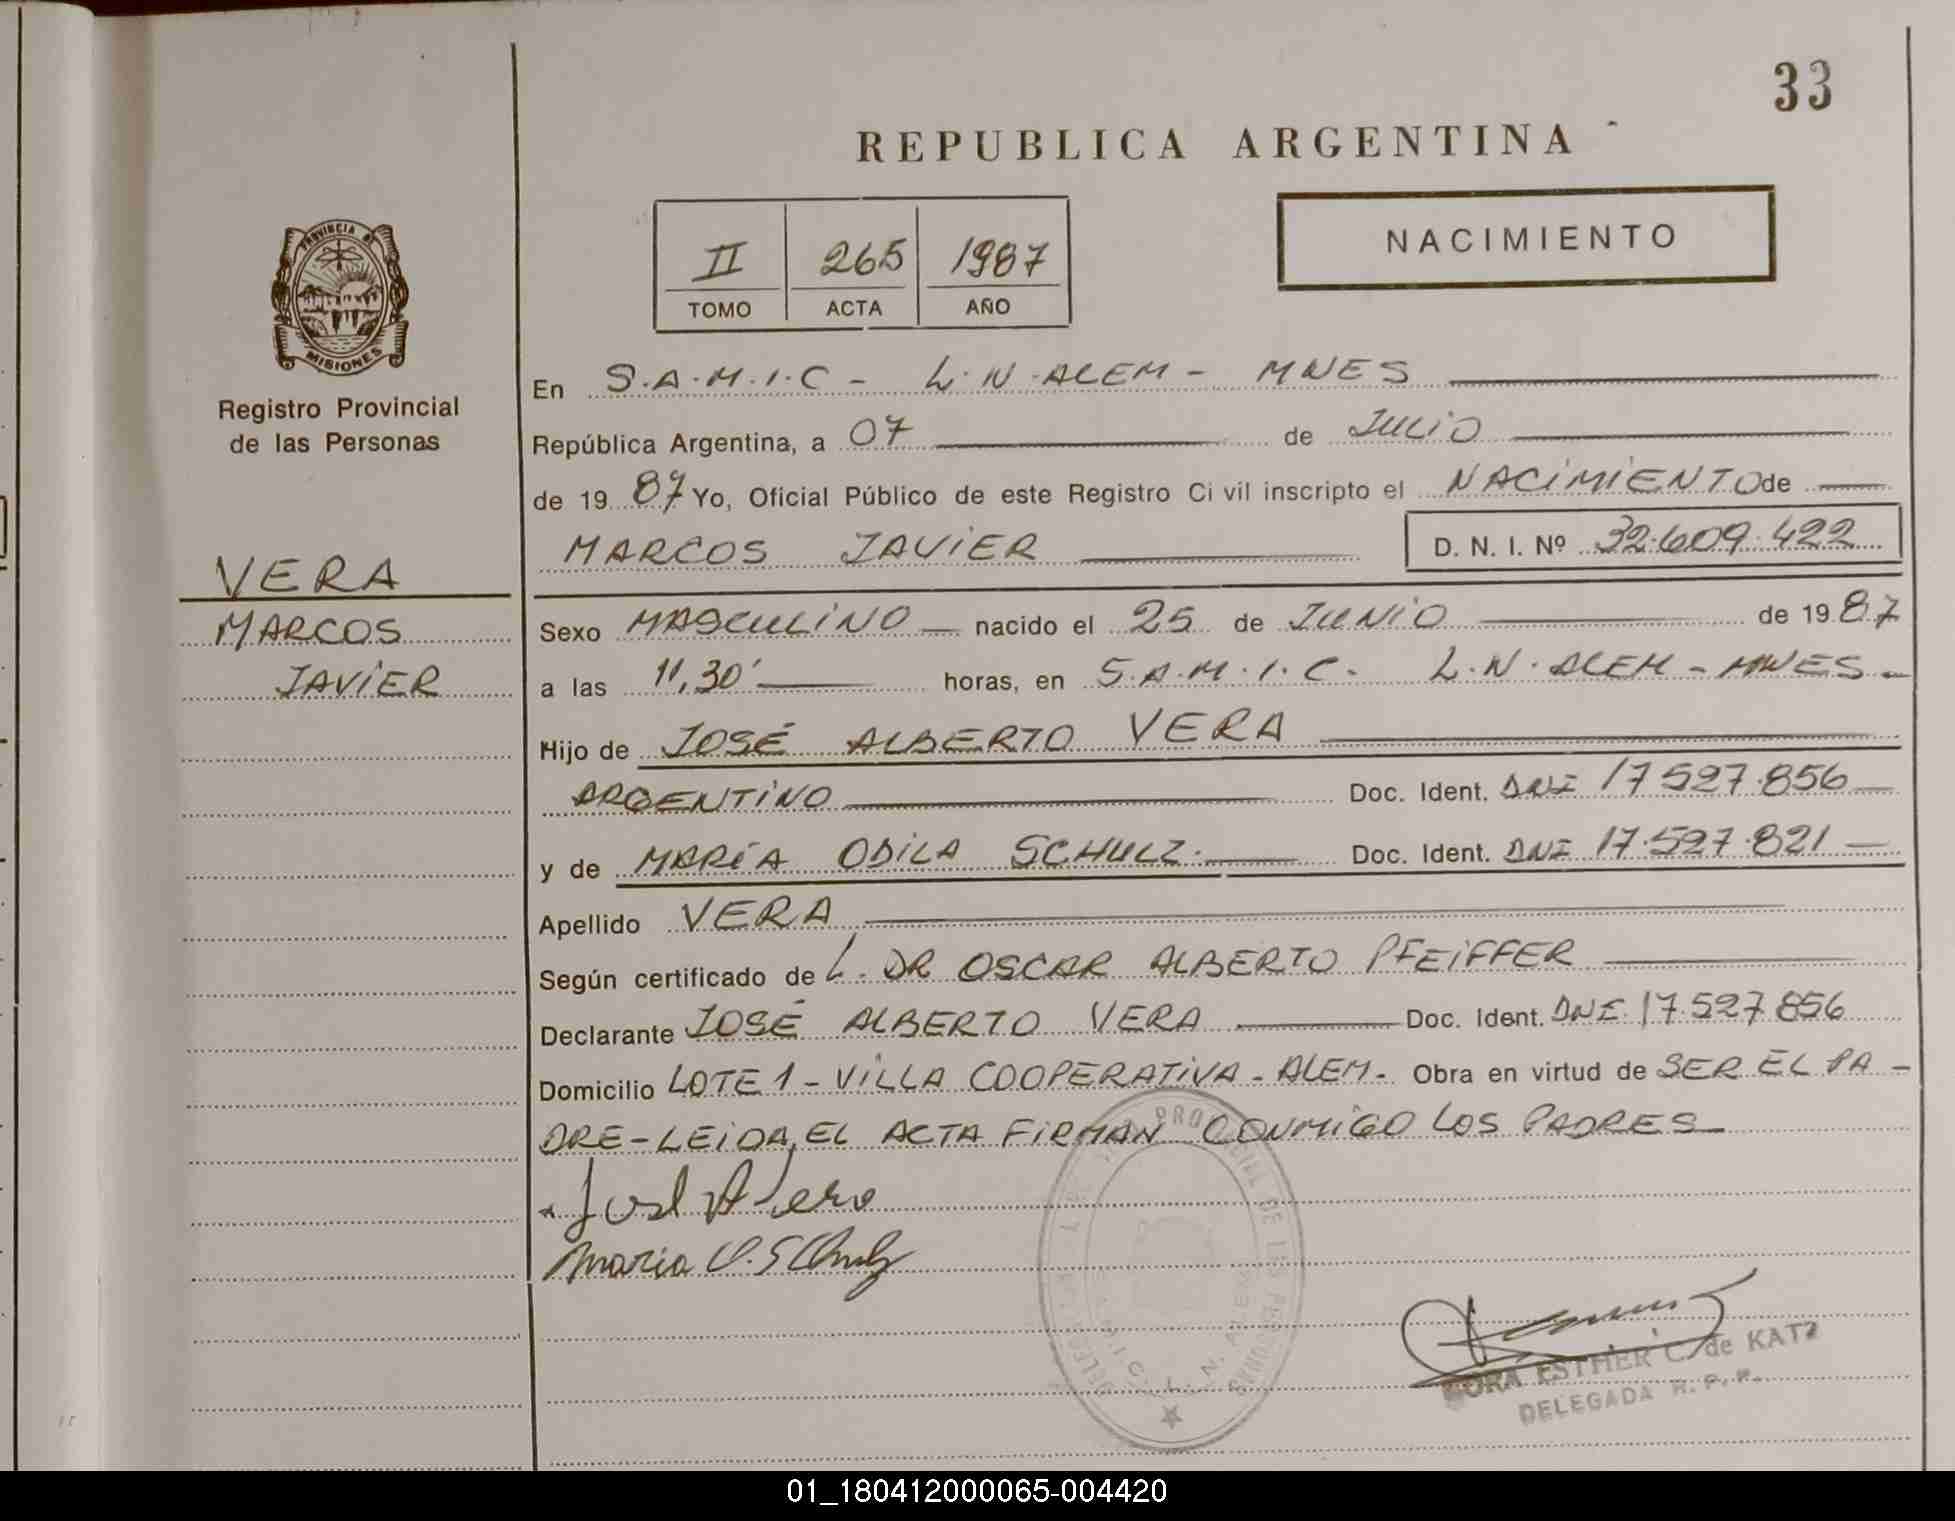 33
REPUBLICA ARGENTINA
II 265 1987
TOMO ACTA AÑO
NACIMIENTO
PROVINCIA DE
MISIONES
Registro Provincial
de las Personas
VERA
MARCOS
JAVIER
En S.A.M.I.C - L.N.ALEM - MNES
República Argentina, a 07 de JULIO
de 1987 Yo, Oficial Público de este Registro Ci vil inscripto el NACIMIENTO de
MARCOS JAVIER D. N. I. Nº 32.609.422
Sexo MASCULINO nacido el 25 de JUNIO de 1987
a las 11,30' horas, en S.A.M.I.C. L.N. ALEM - MNES -
Hijo de JOSÉ ALBERTO VERA
ARGENTINO Doc. Ident. DNI 17.527.856
y de MARÍA ODILA SCHULZ. Doc. Ident. DNI 17.527.821
Apellido VERA
Según certificado de L. DR OSCAR ALBERTO PFEIFFER
Declarante JOSÉ ALBERTO VERA Doc. Ident. DNI. 17.527.856
Domicilio LOTE 1 - VILLA COOPERATIVA - ALEM - Obra en virtud de SER EL PA -
DRE - LEIDA, EL ACTA FIRMAN CONMIGO LOS PADRES
Maria O. Schulz
DE LAS PERSONAS
L. N. ALEM
ESTHER C. de KATZ
DELEGADA R. P. P.
01_180412000065-004420